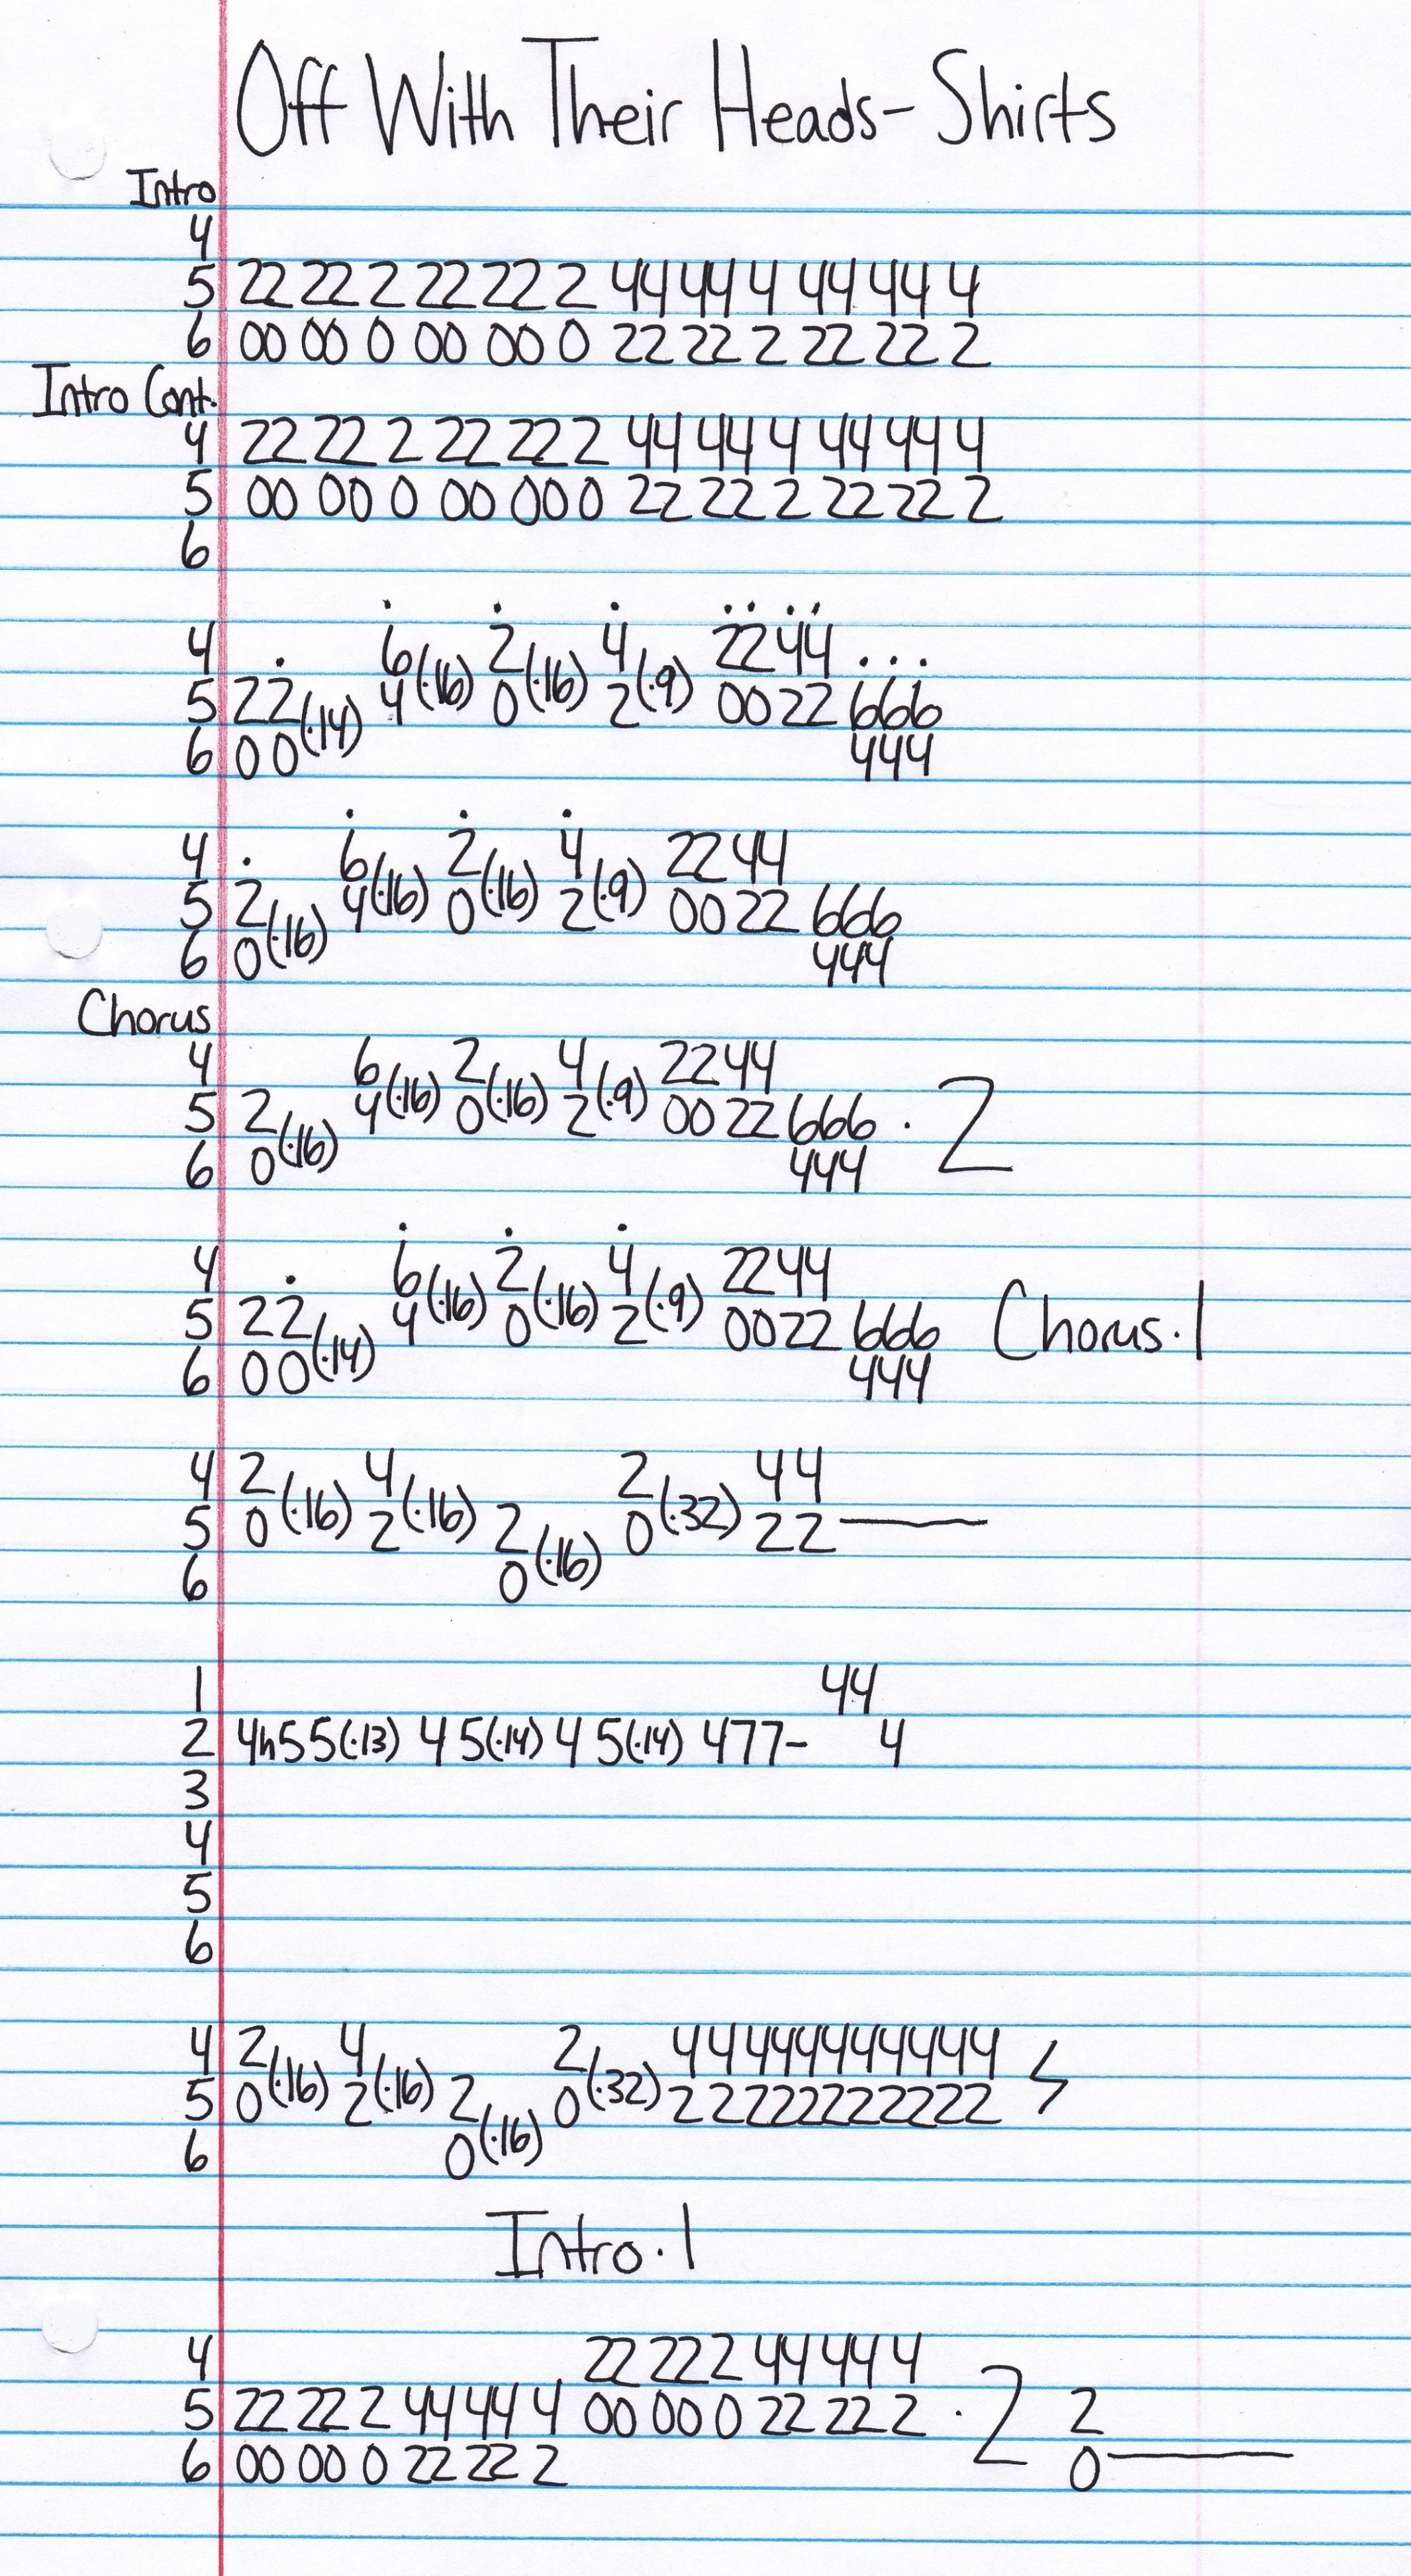 Off With Their Heads- Shirts
Intro
4
5 22 22 2 22 22 2 44 44 4 44 44 4
6 00 00 0 00 00 0 22 22 2 22 22 2
Intro Cont.
4 22 22 2 22 22 2 44 44 4 44 44 4
5 00 00 0 00 00 0 22 22 2 22 22 2
6
4 6 2 4 22 44 ...
5 22(.14) 4(.16) 0(.16) 2(.9) 00 22 666
6 00 444
4 . 6 2 4 22 44
5 2 4(.16) 0(.16) 2(.9) 00 22 666
6 0(.16) 444
Chorus
4 6 2 4 22 44
5 2 4(.16) 0(.16) 2(.9) 00 22 666 . 2
6 0(.16) 444
4 6 2 4 22 44
5 22 4(.16) 0(.16) 2(.9) 00 22 666 Chorus.1
6 00(.14) 444
4 2 4 2 44
5 0(.16) 2(.16) 2 0(.32) 22
6 0(.16)
1 44
2 4h55(.13) 4 5(.14) 4 5(.14) 477- 4
3
4
5
6
4 2 4 2 4 4 44444444444
5 0(.16) 2(.16) 2 0(.32) 2 2 2222222222
6 0(.16)
Intro.1
4 22 22 2 44 44 4
5 22 22 2 44 44 4 00 00 0 22 22 2 . 2 2
6 00 00 0 22 22 2 0